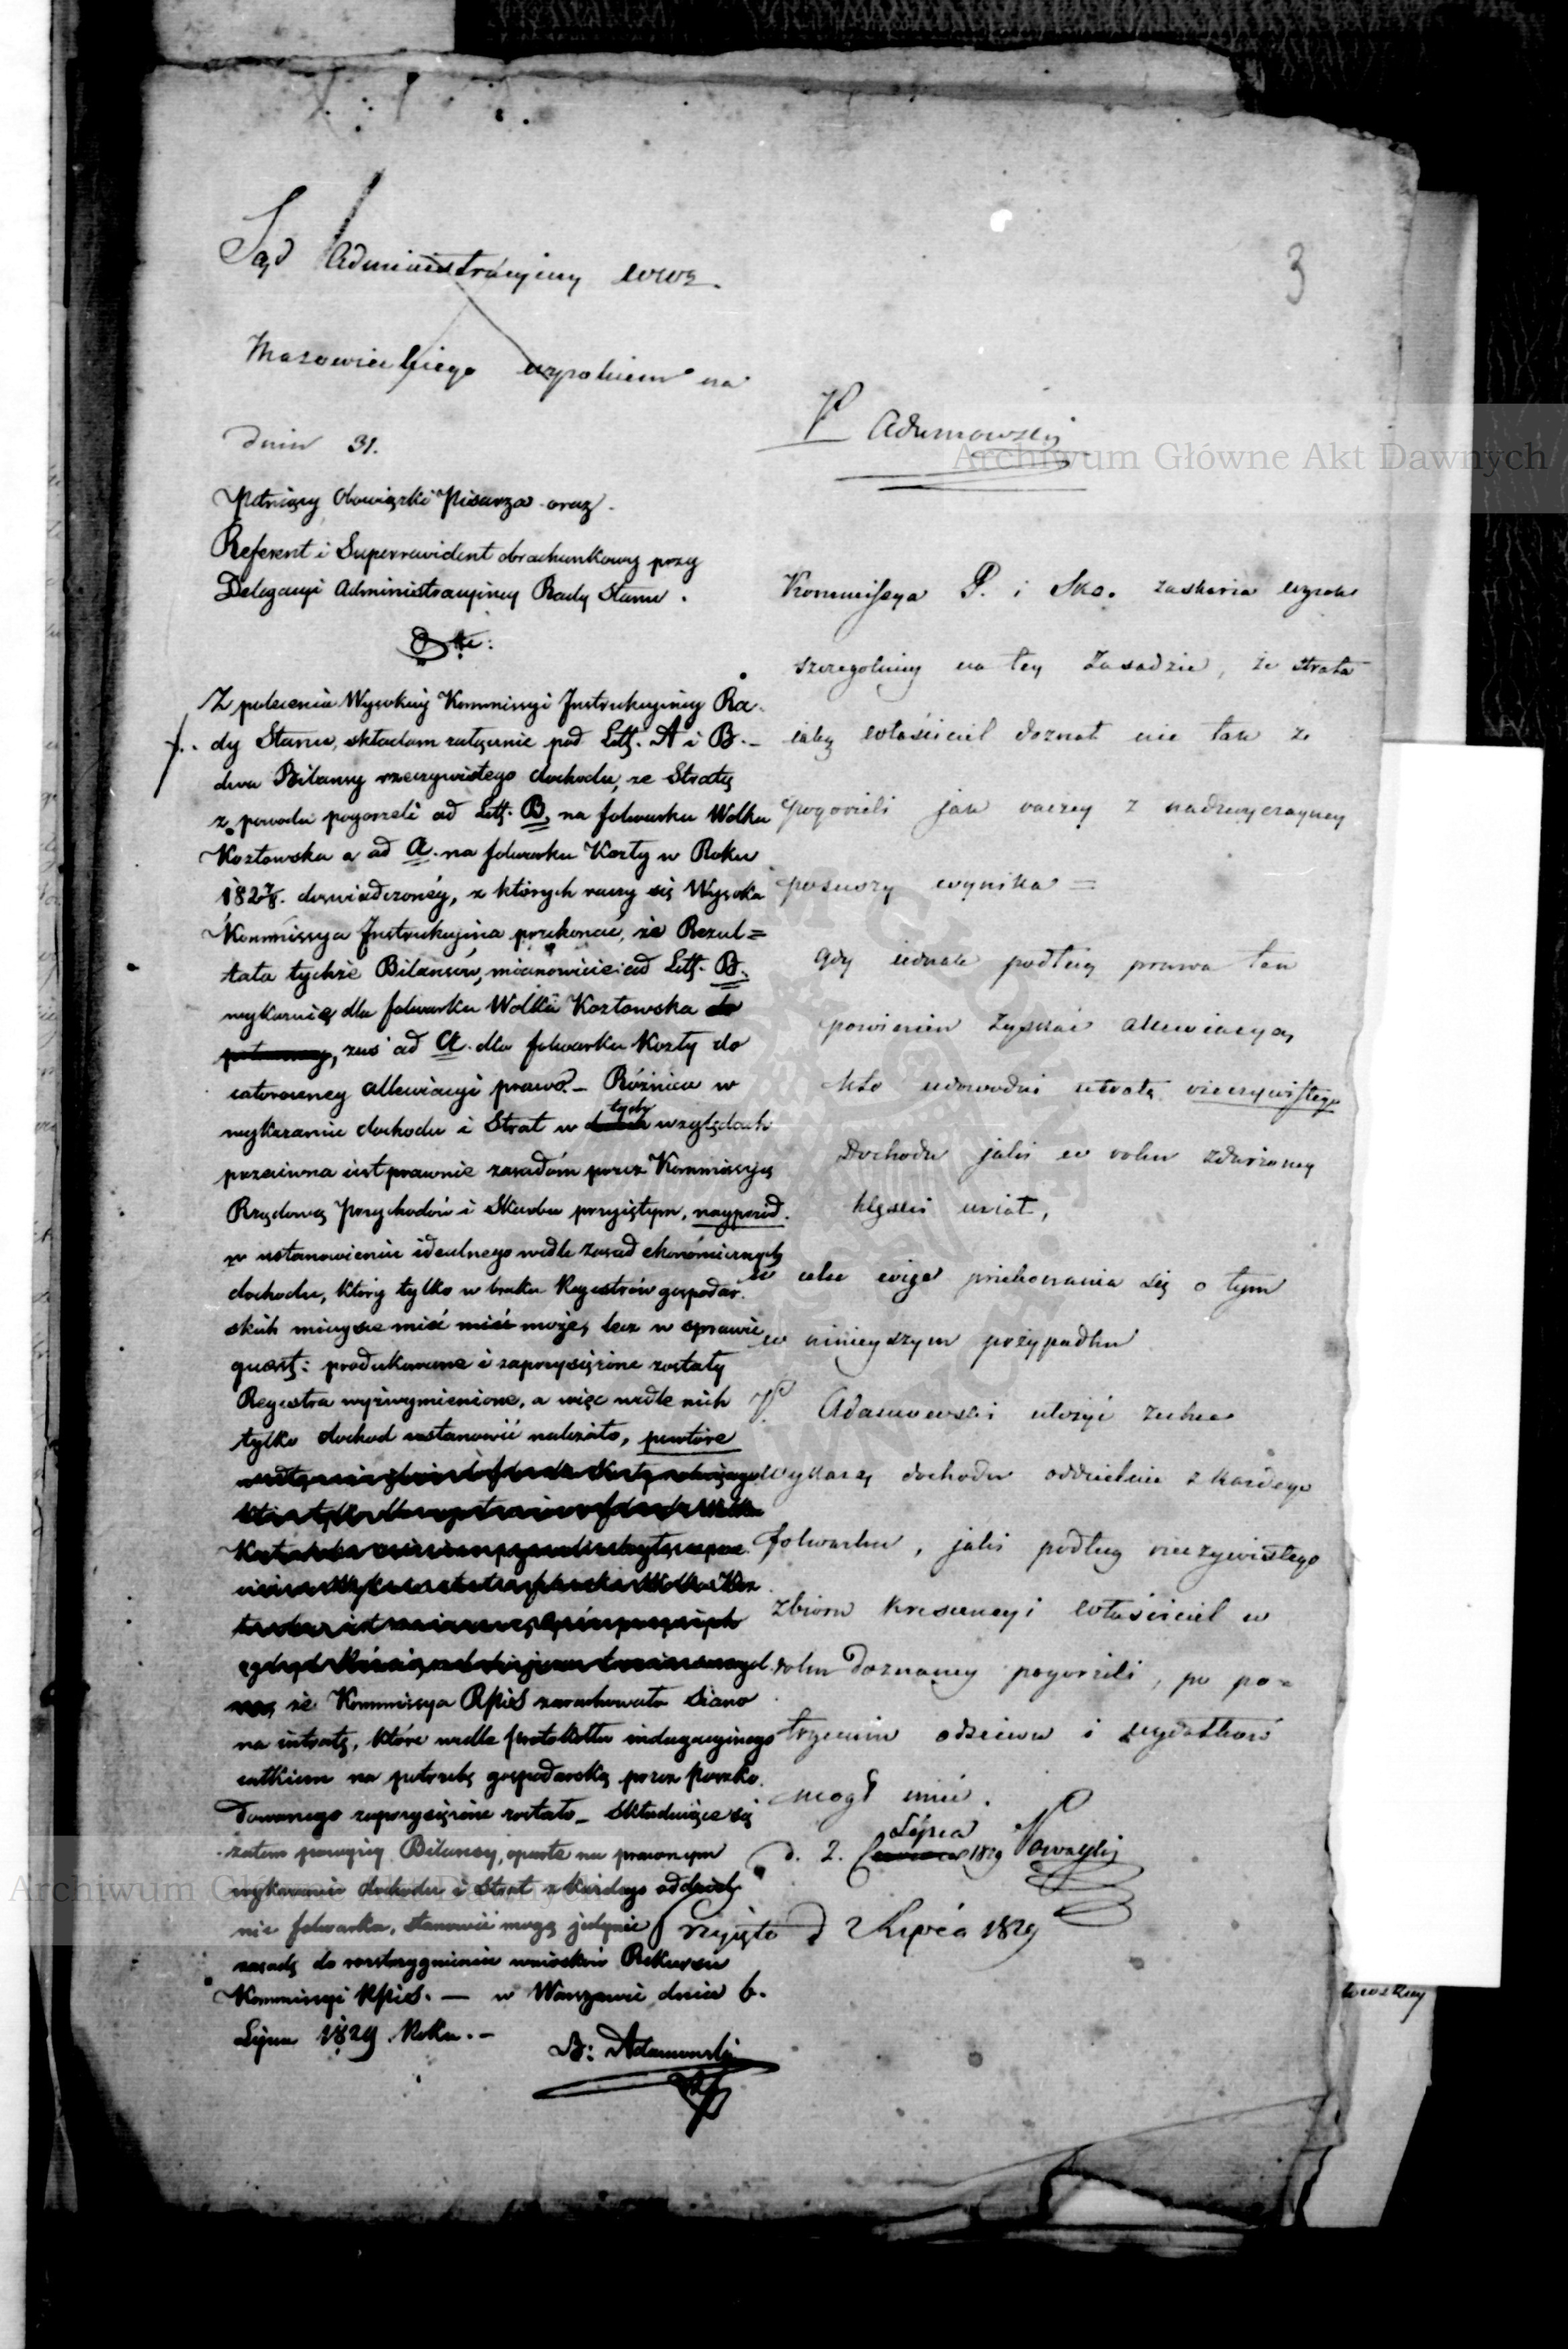 3
Sąd Administracyiny wwa.
Mazowieckiego wyrokiem na
dniu 31.
Pełniący Obowiązki Pisarza oraz
Referent i Superrewident obrachunkowy przy
Delegacyi Administracyiney Rady Stanu.
Z polecenia Wysokiey Kommissyi Instrukcyiney Ra-
dy Stanu, składam załącznie pod Litt. A i B. –
dwa Bilansy rzeczywistego dochodu, ze Stratą
z powodu pogorzeli ad Litt. B, na folwarku Wolka
Kozłowska a ad A. na folwarku Kozły w Roku
1827/8. doświadczoney, z których raczy się Wysoka
Kommissya Instrukcyina przekonać, że Rezul=
tata tychże Bilansów, mianowicie: ad Litt. B.
wykazuią dla folwarku Wolka Kozłowska do
zaś ad A. dla folwarku Kozły do
całoroczney allewiacyi prawo. – Różnica w
wykazaniu dochodu i Strat w tych względach
przeciwna iest prawnie zasadóm przez Kommissyą
Rządową Przychodów i Skarbu przyiętym, nayprzód.
w ustanowieniu idealnego wedle zasad ekonomicznych
dochodu, który tylko w braku Regestrów gospodar.
skich mieysce mieć mieć może, lecz w sprawie
quaest: produkowane i zaprzysiężone zostały
Regestra wyżwymienione, a więc wedle nich
tylko dochod ustanowić należało, powtóre
że Kommissya RPiS zarachowała Siano
na intratę, które wedle protokółu indagacyinego
całkiem na potrzebę gospodarską przez Poszko.
dowanego zaprzysiężone zostało – Składaiące się
zatem powyżey Bilansy, oparte na prawnym
wykazaniu dochodu i Strat z każdego oddziel-
nie folwarku, stanowić mogą jedynie
zasadę do rozstrzygnienia wniosków Rekursu
Kommissyi RPiS. — w Warszawie dnia 6.
Lipca 1829. Roku. –
B: Adamowski
P Adamowski
Kommissya P. i Ska. zaskarża wyrok
szczególniey na tey Zasadzie, że strata
iaką właściciel doznał nie tak z
pogorzeli jak raczey z nadzwyczayney
posuchy wynika =
Gdy iednak podług prawa ten
powinien zyskać allewiacyą,
kto udowodni utratę rzeczywistego
Dochodu jaki w roku zdarzoney
klęski miał,
w celu więc przekonania się o tym
w ninieyszym przypadku
P Adamowski ułożyć zechce
Wykazy dochodu oddzielnie z każdego
folwarku, jaki podług rzeczywistego
zbioru Krescencyi właściciel w
roku Doznaney pogorzeli, po po=
trąceniu odsiewu i wydatków
mógł mieć.
Lipca
d. 2. Czerwca 1829
Przyięto d 2 Lipca 1829